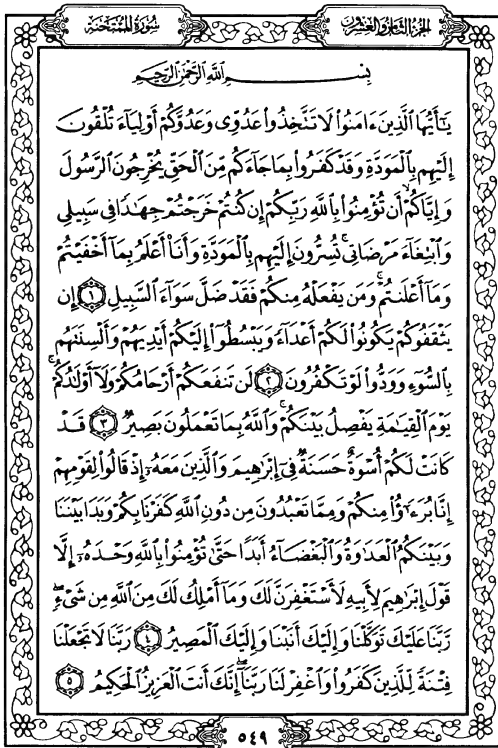 الجزء الثامن والعشرون
سورة الممتحنة
بِسْمِ اللَّهِ الرَّحْمَٰنِ الرَّحِيمِ
يَـٰٓأَيُّهَا ٱلَّذِينَ ءَامَنُوا۟ لَا تَتَّخِذُوا۟ عَدُوِّى وَعَدُوَّكُمْ أَوْلِيَآءَ تُلْقُونَ
إِلَيْهِم بِٱلْمَوَدَّةِ وَقَدْ كَفَرُوا۟ بِمَا جَآءَكُم مِّنَ ٱلْحَقِّ يُخْرِجُونَ ٱلرَّسُولَ
وَإِيَّاكُمْ ۙ أَن تُؤْمِنُوا۟ بِٱللَّهِ رَبِّكُمْ إِن كُنتُمْ خَرَجْتُمْ جِهَـٰدًا فِى سَبِيلِى
وَٱبْتِغَآءَ مَرْضَاتِى ۚ تُسِرُّونَ إِلَيْهِم بِٱلْمَوَدَّةِ وَأَنَا۠ أَعْلَمُ بِمَآ أَخْفَيْتُمْ
وَمَآ أَعْلَنتُمْ ۚ وَمَن يَفْعَلْهُ مِنكُمْ فَقَدْ ضَلَّ سَوَآءَ ٱلسَّبِيلِ ١ إِن
يَثْقَفُوكُمْ يَكُونُوا۟ لَكُمْ أَعْدَآءً وَيَبْسُطُوٓا۟ إِلَيْكُمْ أَيْدِيَهُمْ وَأَلْسِنَتَهُم
بِٱلسُّوٓءِ وَوَدُّوا۟ لَوْ تَكْفُرُونَ ٢ لَن تَنفَعَكُمْ أَرْحَامُكُمْ وَلَآ أَوْلَـٰدُكُمْ ۚ
يَوْمَ ٱلْقِيَـٰمَةِ يَفْصِلُ بَيْنَكُمْ ۚ وَٱللَّهُ بِمَا تَعْمَلُونَ بَصِيرٌ ٣ قَدْ
كَانَتْ لَكُمْ أُسْوَةٌ حَسَنَةٌ فِىٓ إِبْرَٰهِيمَ وَٱلَّذِينَ مَعَهُۥٓ إِذْ قَالُوا۟ لِقَوْمِهِمْ
إِنَّا بُرَءَٰٓؤُا۟ مِنكُمْ وَمِمَّا تَعْبُدُونَ مِن دُونِ ٱللَّهِ كَفَرْنَا بِكُمْ وَبَدَا بَيْنَنَا
وَبَيْنَكُمُ ٱلْعَدَٰوَةُ وَٱلْبَغْضَآءُ أَبَدًا حَتَّىٰ تُؤْمِنُوا۟ بِٱللَّهِ وَحْدَهُۥٓ إِلَّا
قَوْلَ إِبْرَٰهِيمَ لِأَبِيهِ لَأَسْتَغْفِرَنَّ لَكَ وَمَآ أَمْلِكُ لَكَ مِنَ ٱللَّهِ مِن شَىْءٍ ۖ
رَّبَّنَا عَلَيْكَ تَوَكَّلْنَا وَإِلَيْكَ أَنَبْنَا وَإِلَيْكَ ٱلْمَصِيرُ ٤ رَبَّنَا لَا تَجْعَلْنَا
فِتْنَةً لِّلَّذِينَ كَفَرُوا۟ وَٱغْفِرْ لَنَا رَبَّنَآ ۖ إِنَّكَ أَنتَ ٱلْعَزِيزُ ٱلْحَكِيمُ ٥
٥٤٩